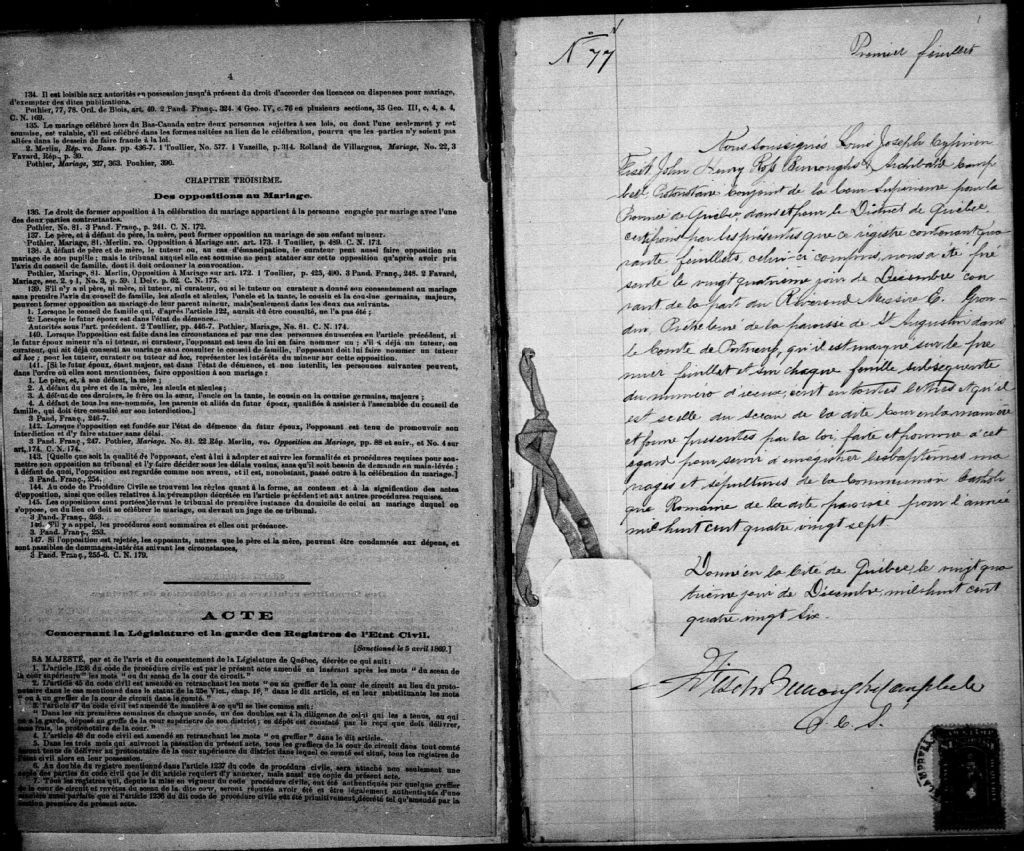 4
134. Il est loisible aux autorités en possession jusqu'à présent du droit d'accorder des licences ou dispenses pour mariage,
d'exempter des dites publications.
Pothier, 77, 78. Ord. de Blois, art. 40. 2 Pand. Franç., 324. 4 Geo. IV, c. 76 en plusieurs sections, 35 Geo. III, c, 4, s. 4,
C. N. 169.
135. Le mariage célébré hors du Bas-Canada entre deux personnes sujettes à ses lois, ou dont l'une seulement y est
soumise, est valable, s'il est célébré dans les formes usitées au lieu de la célébration, pourvu que les parties n'y soient pas
allées dans le dessein de faire fraude à la loi.
2. Merlin, Rép. vo. Bans. pp. 436-7. 1 Toullier, No. 577. 1 Vazeille, p. 314. Rolland de Villargues, Mariage, No. 22, 3
Favard, Rép., p. 39.
Pothier, Mariage, 327, 363. Pouhier, 390.
CHAPITRE TROISIÈME.
Des oppositions au Mariage.
136. Le droit de former opposition à la célébration du mariage appartient à la personne engagée par mariage avec l'une
des deux parties contractantes.
Pothier, No. 81. 3 Pand. Franç., p. 241. C. N. 172.
137. Le père, et à défaut du père, la mère, peut former opposition au mariage de son enfant mineur.
Pothier, Mariage, 81.-Merlin. vo. Opposition à Mariage sur art. 173. 1 Toullier, p. 489. C. N. 173.
138. A défaut de père et de mère, le tuteur ou, au cas d'émancipation, le curateur peut aussi faire opposition au
mariage de son pupille; mais le tribunal auquel elle est soumise ne peut statuer sur cette opposition qu'après avoir pris
l'avis du conseil de famille, dont il doit ordonner la convocation.
Pothier, Mariage, 81. Merlin, Opposition à Mariage sur art. 172. 1 Toullier, p. 425, 490. 3 Pand. Franç., 248. 2 Favard,
Mariage, sec. 2. § 1, No. 3, p. 59. 1 Delv. p. 62. C. N. 175.
139. S'il n'y a ni père, ni mère, ni tuteur, ni curateur, ou si le tuteur ou curateur a donné son consentement au mariage
sans prendre l'avis du conseil de famille, les aïeuls et aïeules, l'oncle et la tante, le cousin et la cousine germains, majeurs,
peuvent former opposition au mariage de leur parent mineur, mais seulement dans les deux cas suivants.
1. Lorsque le conseil de famille qui, d'après l'article 122, aurait dû être consulté, ne l'a pas été;
2. Lorsque le futur époux est dans l'état de démence.
Autorités sous l'art. précédent. 2 Toullier, pp. 446-7. Pothier, Mariage, No. 81. C. N. 174.
140. Lorsque l'opposition est faite dans les circonstances et par une des personnes énumérées en l'article précédent, si
le futur époux mineur n'a ni tuteur, ni curateur, l'opposant est tenu de lui en faire nommer un; s'il a déjà un tuteur, ou
curateur, qui ait déjà consenti au mariage sans consulter le conseil de famille, l'opposant doit lui faire nommer un tuteur
ad hoc; pour les tuteur, curateur ou tuteur ad hoc, représenter les intérêts du mineur sur cette opposition.
141. [Si le futur époux, étant majeur, est dans l'état de démence, et non interdit, les personnes suivantes peuvent,
dans l'ordre où elles sont mentionnées, faire opposition à son mariage:
1. Le père, et, à son défaut, la mère;
2. A défaut du père et de la mère, les aïeuls et aïeules;
3. A défaut de ces derniers, le frère ou la sœur, l'oncle ou la tante, le cousin ou la cousine germains, majeurs;
4. A défaut de tous les sus-nommés, les parents et alliés du futur époux, qualifiés à assister à l'assemblée du conseil de
famille, qui doit être consulté sur son interdiction.]
3 Pand. Franç., 246-7.
142. Lorsque l'opposition est fondée sur l'état de démence du futur époux, l'opposant est tenu de promouvoir son
interdiction et d'y faire statuer sans délai.
3 Pand. Franç., 247. Pothier, Mariage. No. 81. 22 Rép. Merlin, vo. Opposition au Mariage, pp. 88 et suiv., et No. 4 sur
art. 174. C. N. 174.
143. [Quelle que soit la qualité de l'opposant, c'est à lui à adopter et suivre les formalités et procédures requises pour sou-
mettre son opposition au tribunal et l'y faire décider sous les délais voulus, sans qu'il soit besoin de demande en main-levée;
à défaut de quoi, l'opposition est regardée comme non avenu, et il est, nonobstant, passé outre à la célébration du mariage.]
3 Pand. Franç., 254.
144. Au code de Procédure Civile se trouvent les règles quant à la forme, au contenu et à la signification des actes
d'opposition, ainsi que celles relatives à la péremption décrétée en l'article précédent et aux autres procédures requises.
145. Les oppositions sont portées devant le tribunal de première instance du domicile de celui au mariage duquel on
s'oppose, ou du lieu où doit se célébrer le mariage, ou devant un juge de ce tribunal.
3 Pand. Franç., 253.
146. S'il y a appel, les procédures sont sommaires et elles ont préséance.
3. Pand. Franç., 253.
147. Si l'opposition est rejetée, les opposants, autres que le père et la mère, peuvent être condamnés aux dépens, et
sont passibles de dommages-intérêts suivant les circonstances,
3 Pand. Franç., 255-6. C. N. 179.
ACTE
Concernant la Législature et la garde des Registres de l'Etat Civil.
[Sanctionné le 5 avril 1869.]
SA MAJESTÉ, par et de l'avis et du consentement de la Législature de Québec, décrète ce qui suit:
1. L'article 1236 du code de procédure civile est par le présent acte amendé en insérant après les mots " du sceau de
la cour supérieure" les mots " ou du sceau de la cour de circuit."
2. L'article 45 du code civil est amendé en retranchant les mots " ou au greffier de la cour de circuit au lieu du proto-
notaire dans le cas mentionné dans le statut de la 25e Vict., chap. 16," dans le dit article, et en leur substituant les mots
" ou à un greffier de la cour de circuit dans le comté."
3. L'article 47 du code civil est amendé de manière à ce qu'il se lise comme suit:
" Dans les six premières semaines de chaque année, un des doubles est à la diligence de celui qui les a tenus, ou qui
en a la garde, déposé au greffe de la cour supérieure de son district; ce dépôt est constaté par le reçu que doit délivrer,
sans frais, le protonotaire de la cour."
4. L'article 48 du code civil est amendé en retranchant les mots " ou greffier" dans le dit article.
5. Dans les trois mois qui suivront la passation du présent acte, tous les greffiers de la cour de circuit dans tout comté
seront tenus de délivrer au protonotaire de la cour supérieure du district dans lequel ce comté est situé, tous les registres de
l'état civil alors en leur possession.
6. Au double du registre mentionné dans l'article 1237 du code de procédure civile, sera attaché non seulement une
copie des parties du code civil que le dit article requiert d'y annexer, mais aussi une copie du présent acte.
7. Tous les registres qui, depuis la mise en vigueur du code procédure civile, ont été authentiqués par quelque greffier
de la cour de circuit et revêtus du sceau de la dite cour, seront réputés avoir été et être légalement authentiqués d'une
manière aussi parfaite que si l'article 1236 du dit code de procédure civile eut été primitivement décrété tel qu'amendé par la
section première du présent acte.
No 77
Premier feuillet
Nous soussignés Louis Joseph Cyprien
Fiset John Henry Ross Burroughs & Archibald Camp
bell Protonotaire Conjoint de la Cour Supérieure pour la
Province de Québec, dans et pour le District de Québec.
certifions par les présentes que ce régistre contenant qua
rante feuillets, celui-ci compris, nous a été pré
senté le vingt quatrième jour de Décembre cou
rant de la part du Révérend Messire E.
din, Prêtre Curé de la paroisse de St Augustin dans
le Comté de Portneuf, qu'il est marqué sur le pre
mier feuillet et sur chaque feuille subséquente
du numéro d'iceux, écrit en toutes lettres et qu'il
est scellé du sceau de la dite Cour en la manière
et forme prescrites par la loi, faite et pourvue à cet
égard pour servir d'enregistrer les baptêmes ma
riages et sépultures de la Communion Catholi
que Romaine de la dite paroisse pour l'année
mil huit cent quatre vingt sept
Donné en la Cité de Québec, le vingt qua
trième jour de Décembre, mil huit cent
quatre vingt six.
Fiset Burroughs Campbell
P. C. S.
CAMPBELL